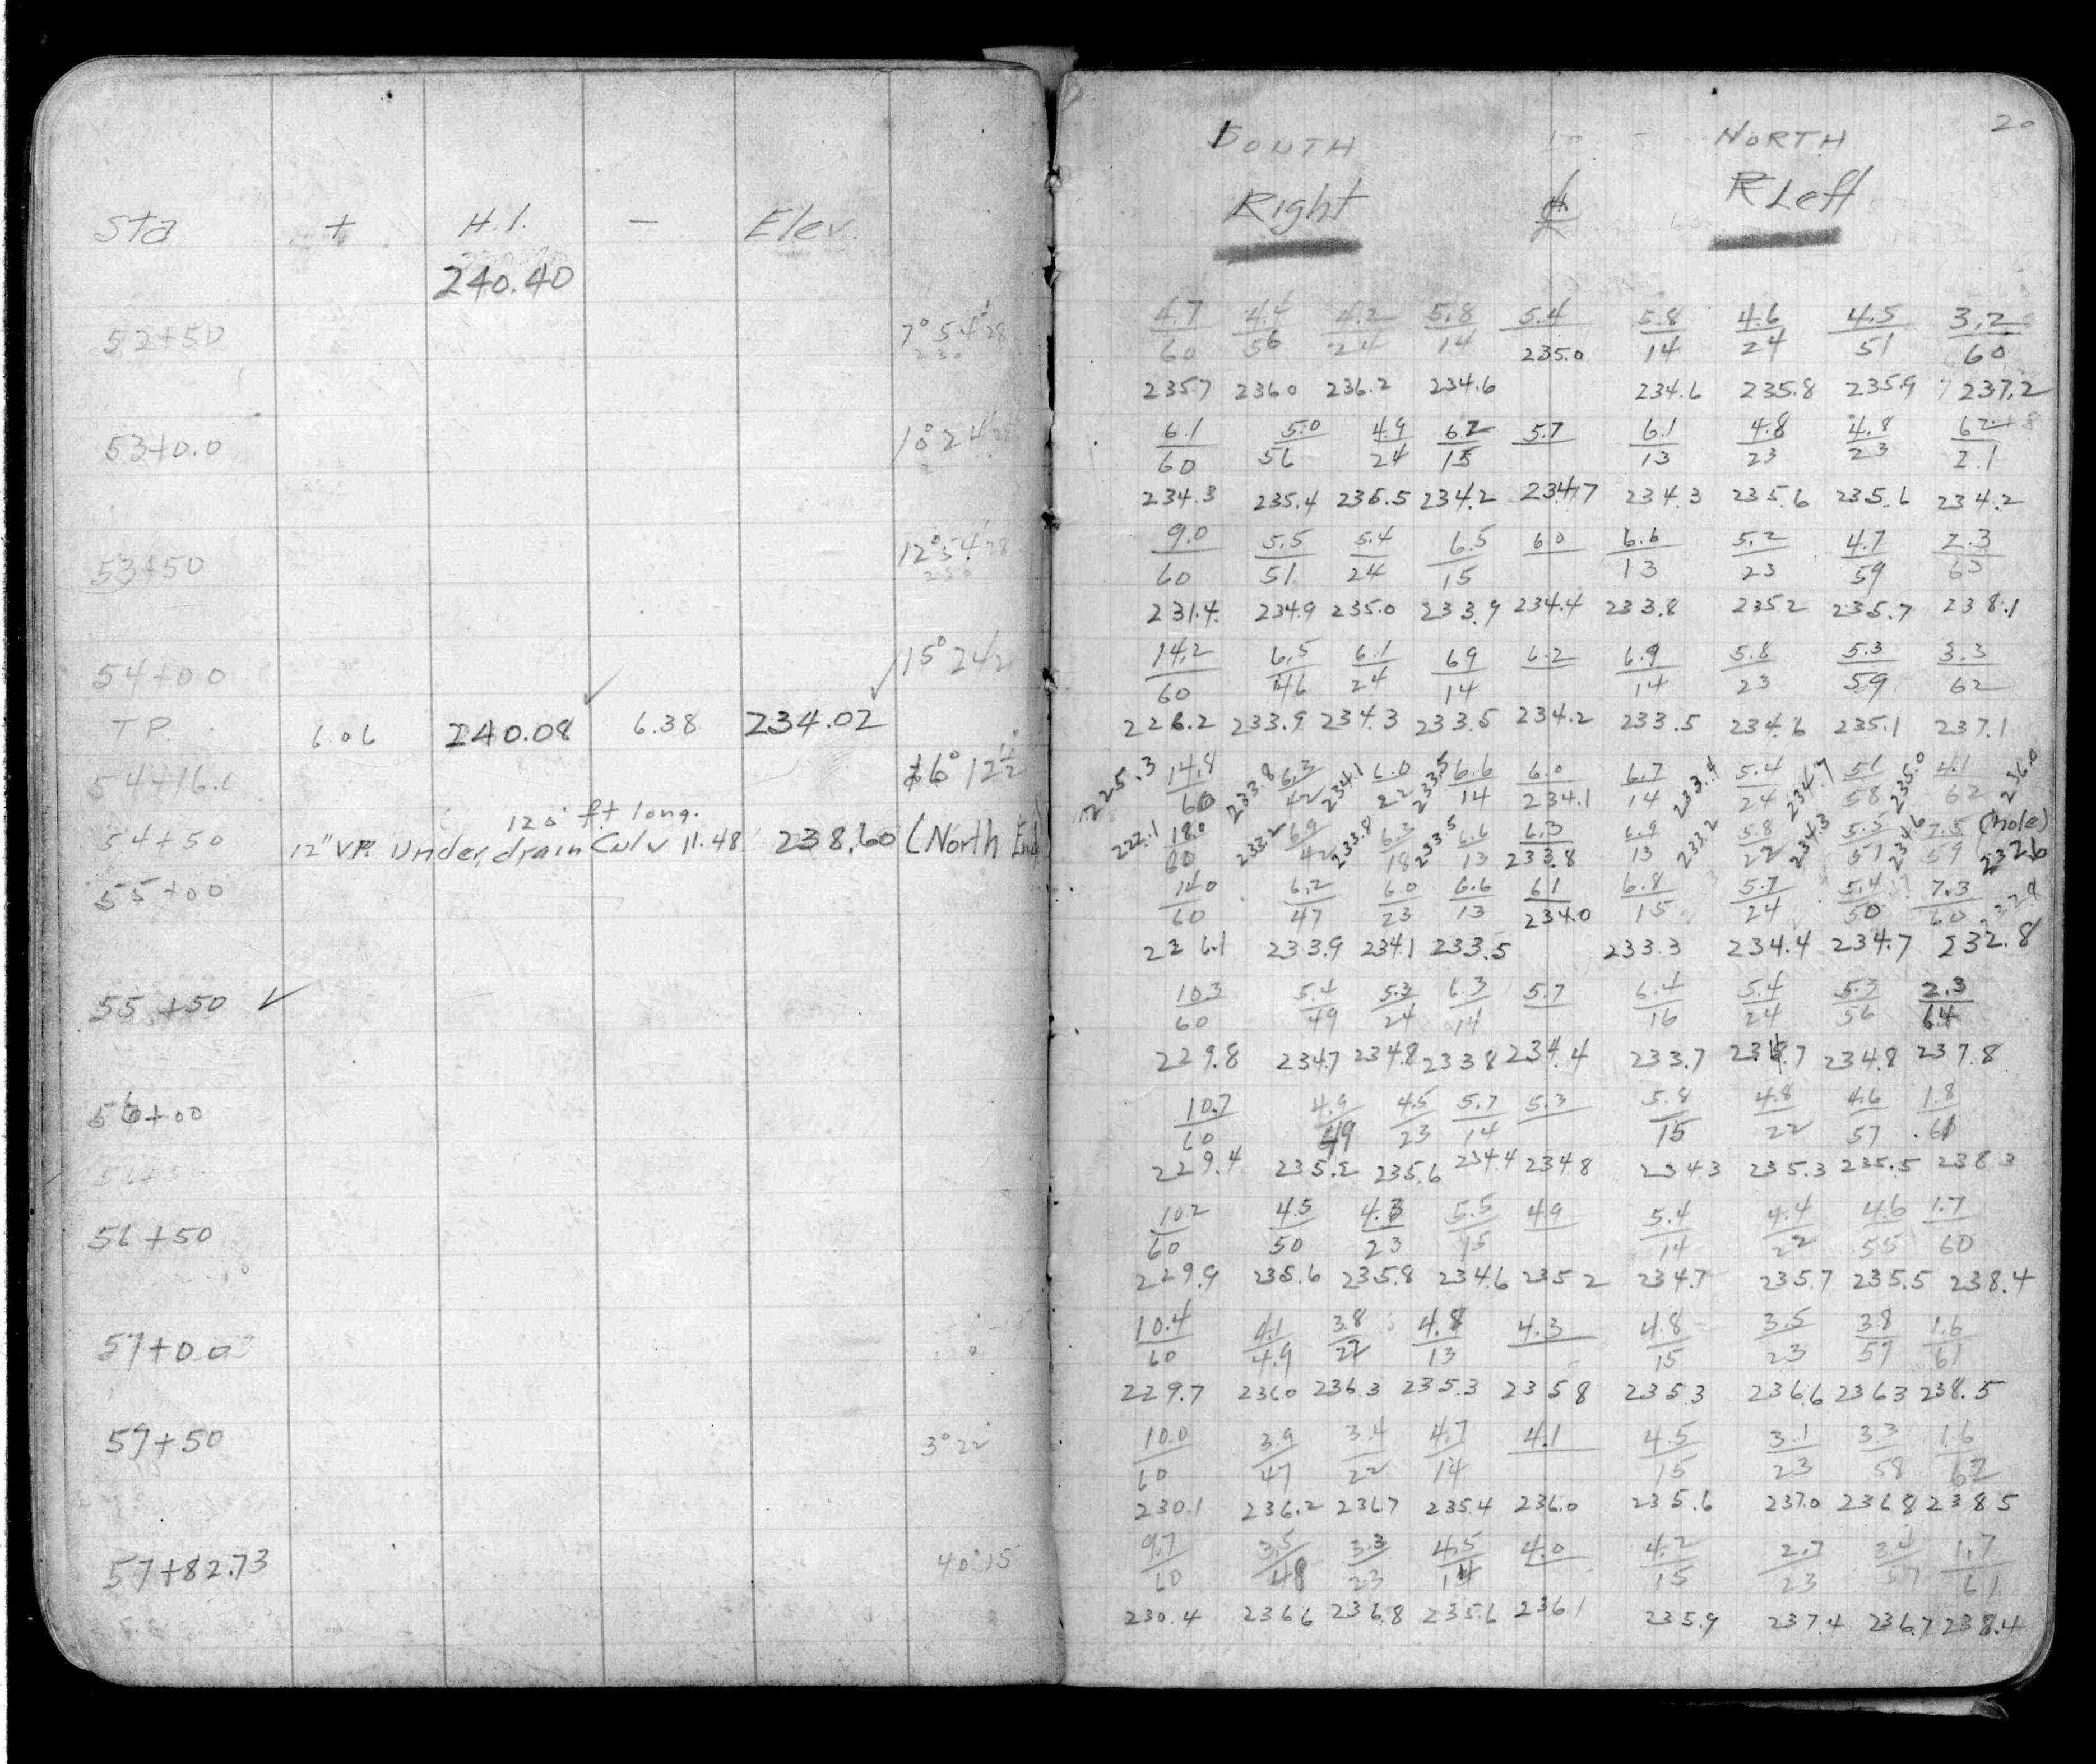 20
SOUTH NORTH
Right ℄ R Left
Sta + H.I. - Elev.
240.40
52+50 7° 54'
4.7 4.4 4.2 5.8 5.4 5.8 4.6 4.5 3.2
60 56 24 14 235.0 14 24 51 60
235.7 236.0 236.2 234.6 234.6 235.8 235.9 237.2
53+0.0 10° 24'
6.1 5.0 4.9 6.2 5.7 6.1 4.8 4.8 62
60 56 24 15 13 23 23 2.1
234.3 235.4 235.5 234.2 234.7 234.3 235.6 235.6 234.2
53+50 12° 54'
9.0 5.5 5.4 6.5 6.0 6.6 5.2 4.7 2.3
60 51 24 15 13 23 59 63
231.4 234.9 235.0 233.9 234.4 233.8 235.2 235.7 238.1
54+00 15° 24
14.2 6.5 6.1 6.9 6.2 6.9 5.8 5.3 3.3
60 46 24 14 14 23 59 62
T P. 6.06 240.08 6.38 234.02
226.2 233.9 234.3 233.5 234.2 233.5 234.6 235.1 237.1
54+16. 16° 12
225.3 14.8 233.8 6.3 234.1 6.0 233.5 6.6 6.0 6.7 233.4 5.4 234.7 5.1 235.0 4.1 236.0
60 42 22 14 234.1 14 24 58 62
120 ft long.
54+50 12" V.P. Underdrain Culv 11.48 238.60 (North End)
222.1 18.0 233.2 6.9 233.8 6.3 233.5 6.6 6.3 6.9 233.2 5.8 234.3 5.5 234.6 7.5 (hole)
60 42 18 13 233.8 13 22 57 59 232.6
55+00
14.0 6.2 6.0 6.6 6.1 6.8 5.7 5.4 7.3
60 47 23 13 234.0 15 24 50 60
226.1 233.9 234.1 233.5 233.3 234.4 234.7 232.8
55+50 ✓
10.3 5.4 5.3 6.3 5.7 6.4 5.4 5.3 2.3
60 49 24 14 16 24 56 64
229.8 234.7 234.8 233.8 234.4 233.7 234.7 234.8 237.8
56+00
10.7 4.9 4.5 5.7 5.3 5.8 4.8 4.6 1.8
60 49 23 14 15 22 57 61
229.4 235.2 235.6 234.4 234.8 234.3 235.3 235.5 238.3
56+50
10.2 4.5 4.3 5.5 4.9 5.4 4.4 4.6 1.7
60 50 23 15 14 22 55 60
229.9 235.6 235.8 234.6 235.2 234.7 235.7 235.5 238.4
57+00
10.4 4.1 3.8 4.8 4.3 4.8 3.5 3.8 1.6
60 49 22 13 15 23 57 61
229.7 236.0 236.3 235.3 235.8 235.3 236.6 236.3 238.5
57+50 3° 22'
10.0 3.9 3.4 4.7 4.1 4.5 3.1 3.3 1.6
60 47 22 14 15 23 58 62
230.1 236.2 236.7 235.4 236.0 235.6 237.0 236.8 238.5
57+82.73 4° 0'.15
9.7 3.5 3.3 4.5 4.0 4.2 2.7 3.4 1.7
60 48 23 14 15 23 57 61
230.4 236.6 236.8 235.6 236.1 235.9 237.4 236.7 238.4